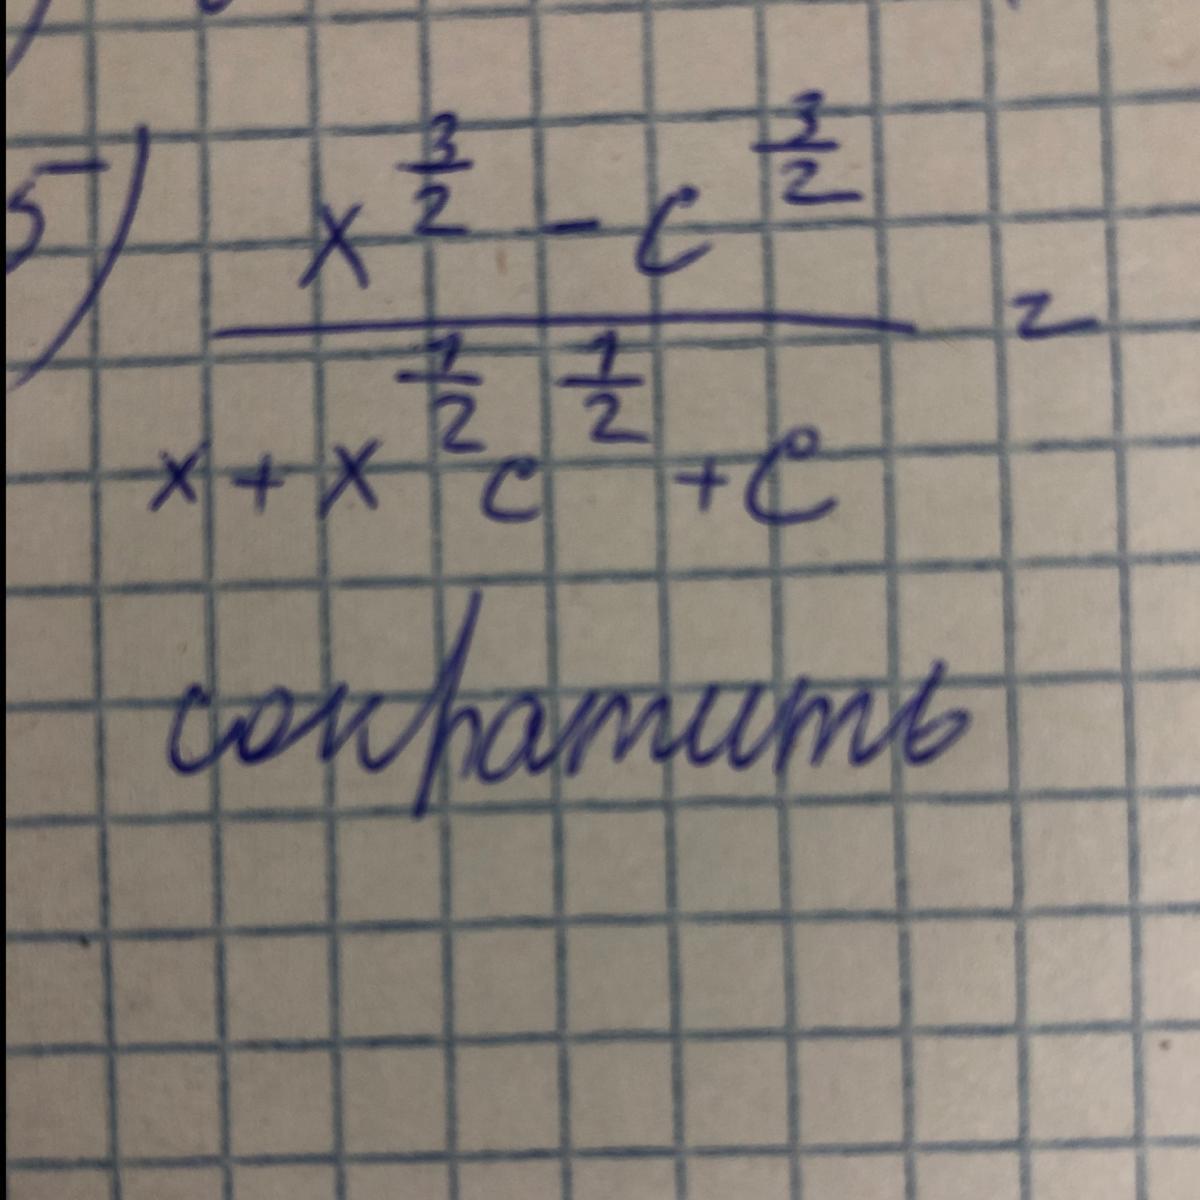 5) \frac{x^{\frac{3}{2}} - c^{\frac{3}{2}}}{x + x^{\frac{1}{2}} c^{\frac{1}{2}} + c} =
сократить